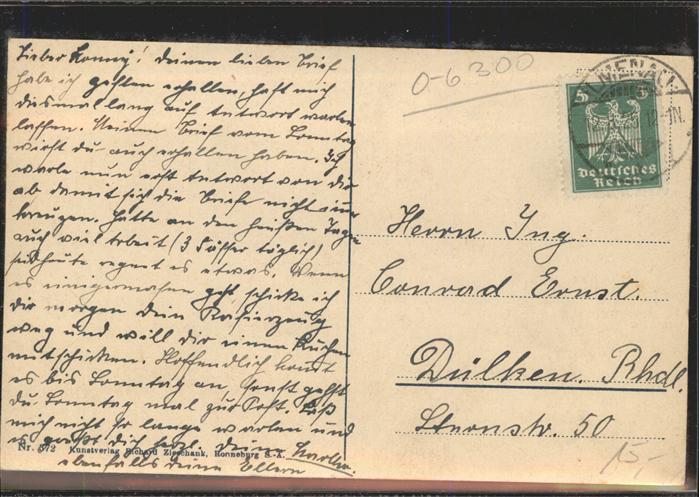 Lieber Konny! deinen lieben Brief
habe ich gestern erhalten, hast mich
diesmal lang auf Antwort warten
lassen. Meinen Brief vom Sonntag
wirst du auch erhalten haben. Ich
warte nun erst Antwort von dir
ab damit sich die Briefe nicht immer
kreuzen. Hatte an den heißen Tagen
auch viel Arbeit (3 Fässer täglich)
heute regnet es etwas. Wenn
es einigermaßen geht, schicke ich
dir morgen dein Rasierzeug
weg und will dir einen Kuchen
mitschicken. Hoffentlich kommt
es bis Sonntag an, sonst gehst
du Sonntag mal zur Post. Laß
mich nicht so lange warten und
es grüßt dich herzl. deine
ebenfalls deine Eltern
Nr. 372 Kunstverlag Richard Zieschank, Ronneburg S.-A.
0-6300
ILMENAU
5 5
Deutsches
Reich
Herrn Ing.
Conrad Ernst.
Dülken. Rhdl.
Sternstr. 50
15,-